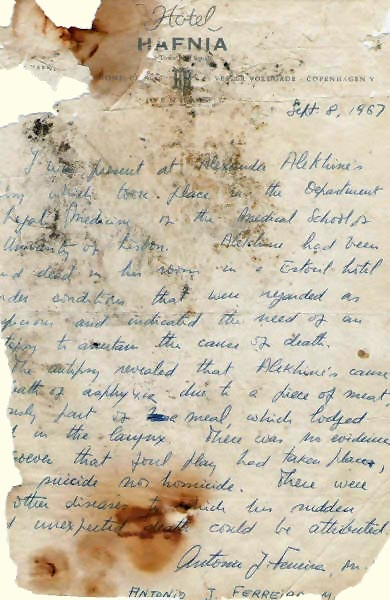 Hotel
HAFNIA
VESTER VOLDGADE · COPENHAGEN V
Sept. 8, 1967
I was present at Alexander Alekhine's
which took place in the Department
Legal Medicine of the Medical School of
University of Lisbon. Alekhine had been
dead in his room in a Estoril hotel
conditions that were regarded as
and indicated the need of an
to ascertain the cause of death.
The autopsy revealed that Alekhine's cause
of asphyxia due to a piece of meat
part of meal, which lodged
in the larynx. There was no evidence
that foul play had taken place,
suicide nor homicide. There were
other diseases to which his sudden
unexpected death could be attributed
Antonio J. Ferreira, M.
ANTONIO J. FERREIRA M.